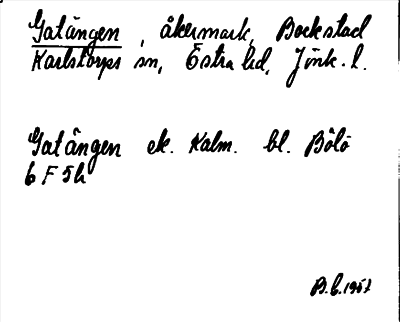 Gatängen, åkermark, Bockstad
Karlstorps sn, Östra hd, Jönk. l.
Gatängen ek. Kalm. bl. Bölö
6 F 5h
B.E. 1957